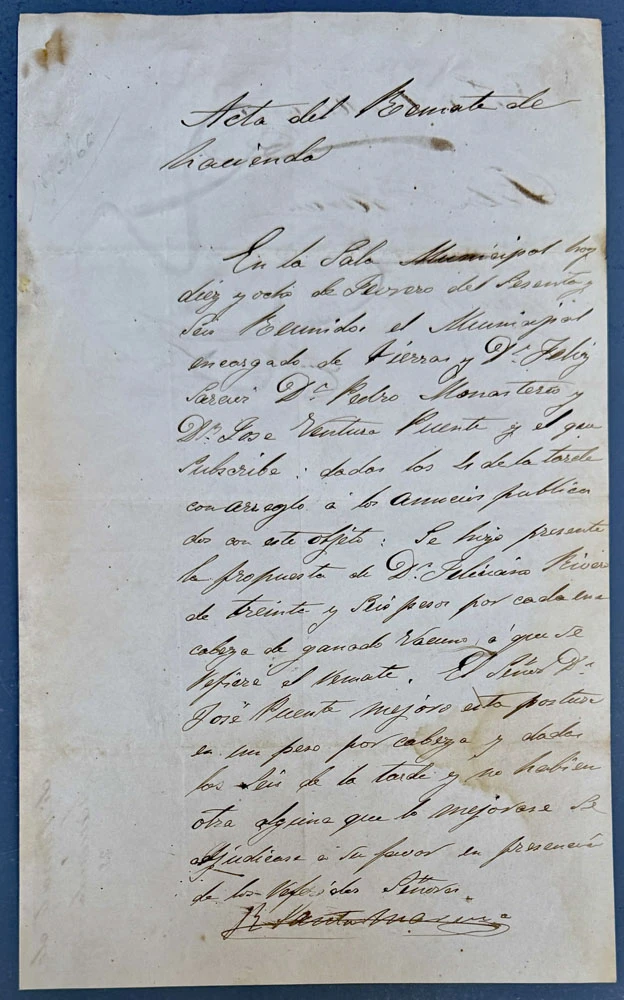 Acta del Remate de
hacienda
En la Sala Municipal hoy
diez y ocho de Febrero del Sesenta y
Seis Reunidos el Municipal
encargado de tierras y Dn. Feliz
Dn. Pedro Monasterio y
Dn. Jose Ventura Puente y el que
Subscribe: dadas las de la tarde
con arreglo á los anuncios publica
dos con este objeto: Se hizo presente
la propuesta de Dn. Feliciano
de treinta y Seis pesos por cada una
cabeza de ganado Vacuno á que se
refiere el remate. El Señor Dn.
José Puente mejoro esta postura
en un peso por cabeza y dadas
las Seis de la tarde y no habien
otra alguna que lo mejorase Se
adjudicase á Su favor en presencia
de los Referidos Señores.
R Santamarina